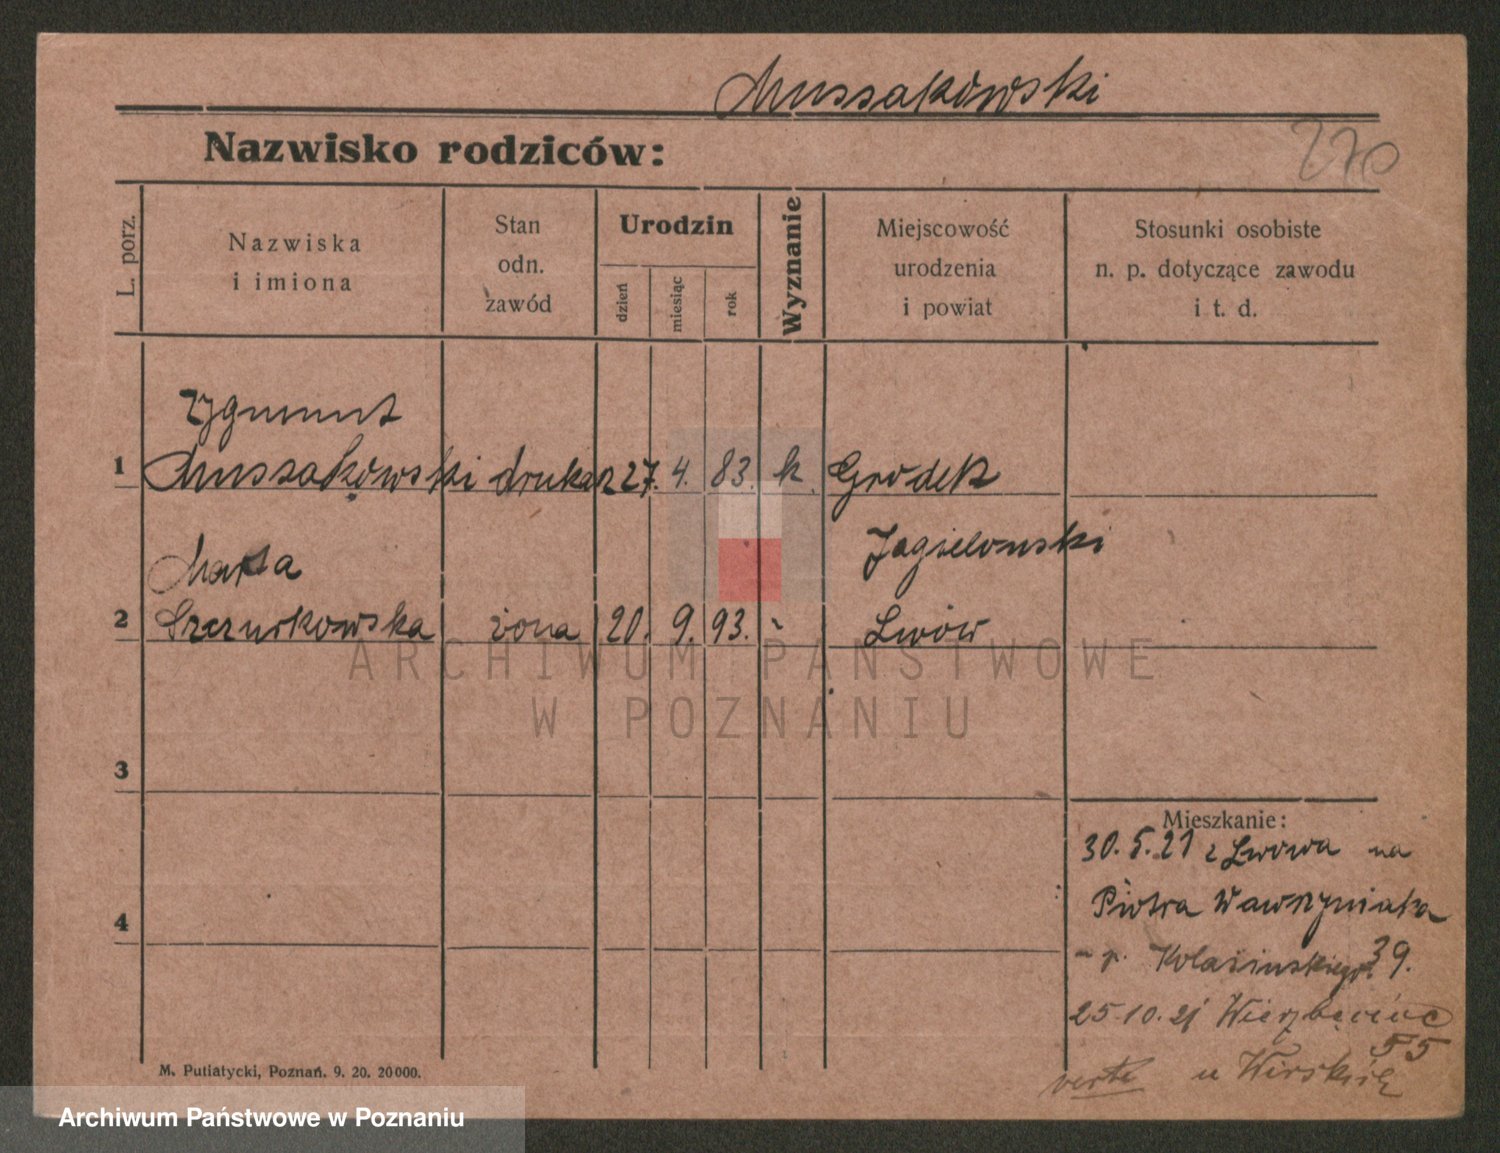 Mussakowski
Nazwisko rodziców:
270
L. porz.
Nazwiska
i imiona
Stan
odn.
zawód
Urodzin
dzień
miesiąc
rok
Wyznanie
Miejscowość
urodzenia
i powiat
Stosunki osobiste
n. p. dotyczące zawodu
i t. d.
Zygmunt
1 Mussakowski drukarz 27. 4. 83. k. Grodek
Jagielonski
Marta
2 Szczurkowska żona 20. 9. 93. Lwów
ARCHIWUM PAŃSTWOWE
W POZNANIU
3
4
Mieszkanie:
30.5.21 z Lwowa na
Piotra Wawrzyniaka
39.
25.10.21 Wierzbięcice
55
verte u Wirskiej
M. Putiatycki, Poznań. 9. 20. 20000.
Archiwum Państwowe w Poznaniu